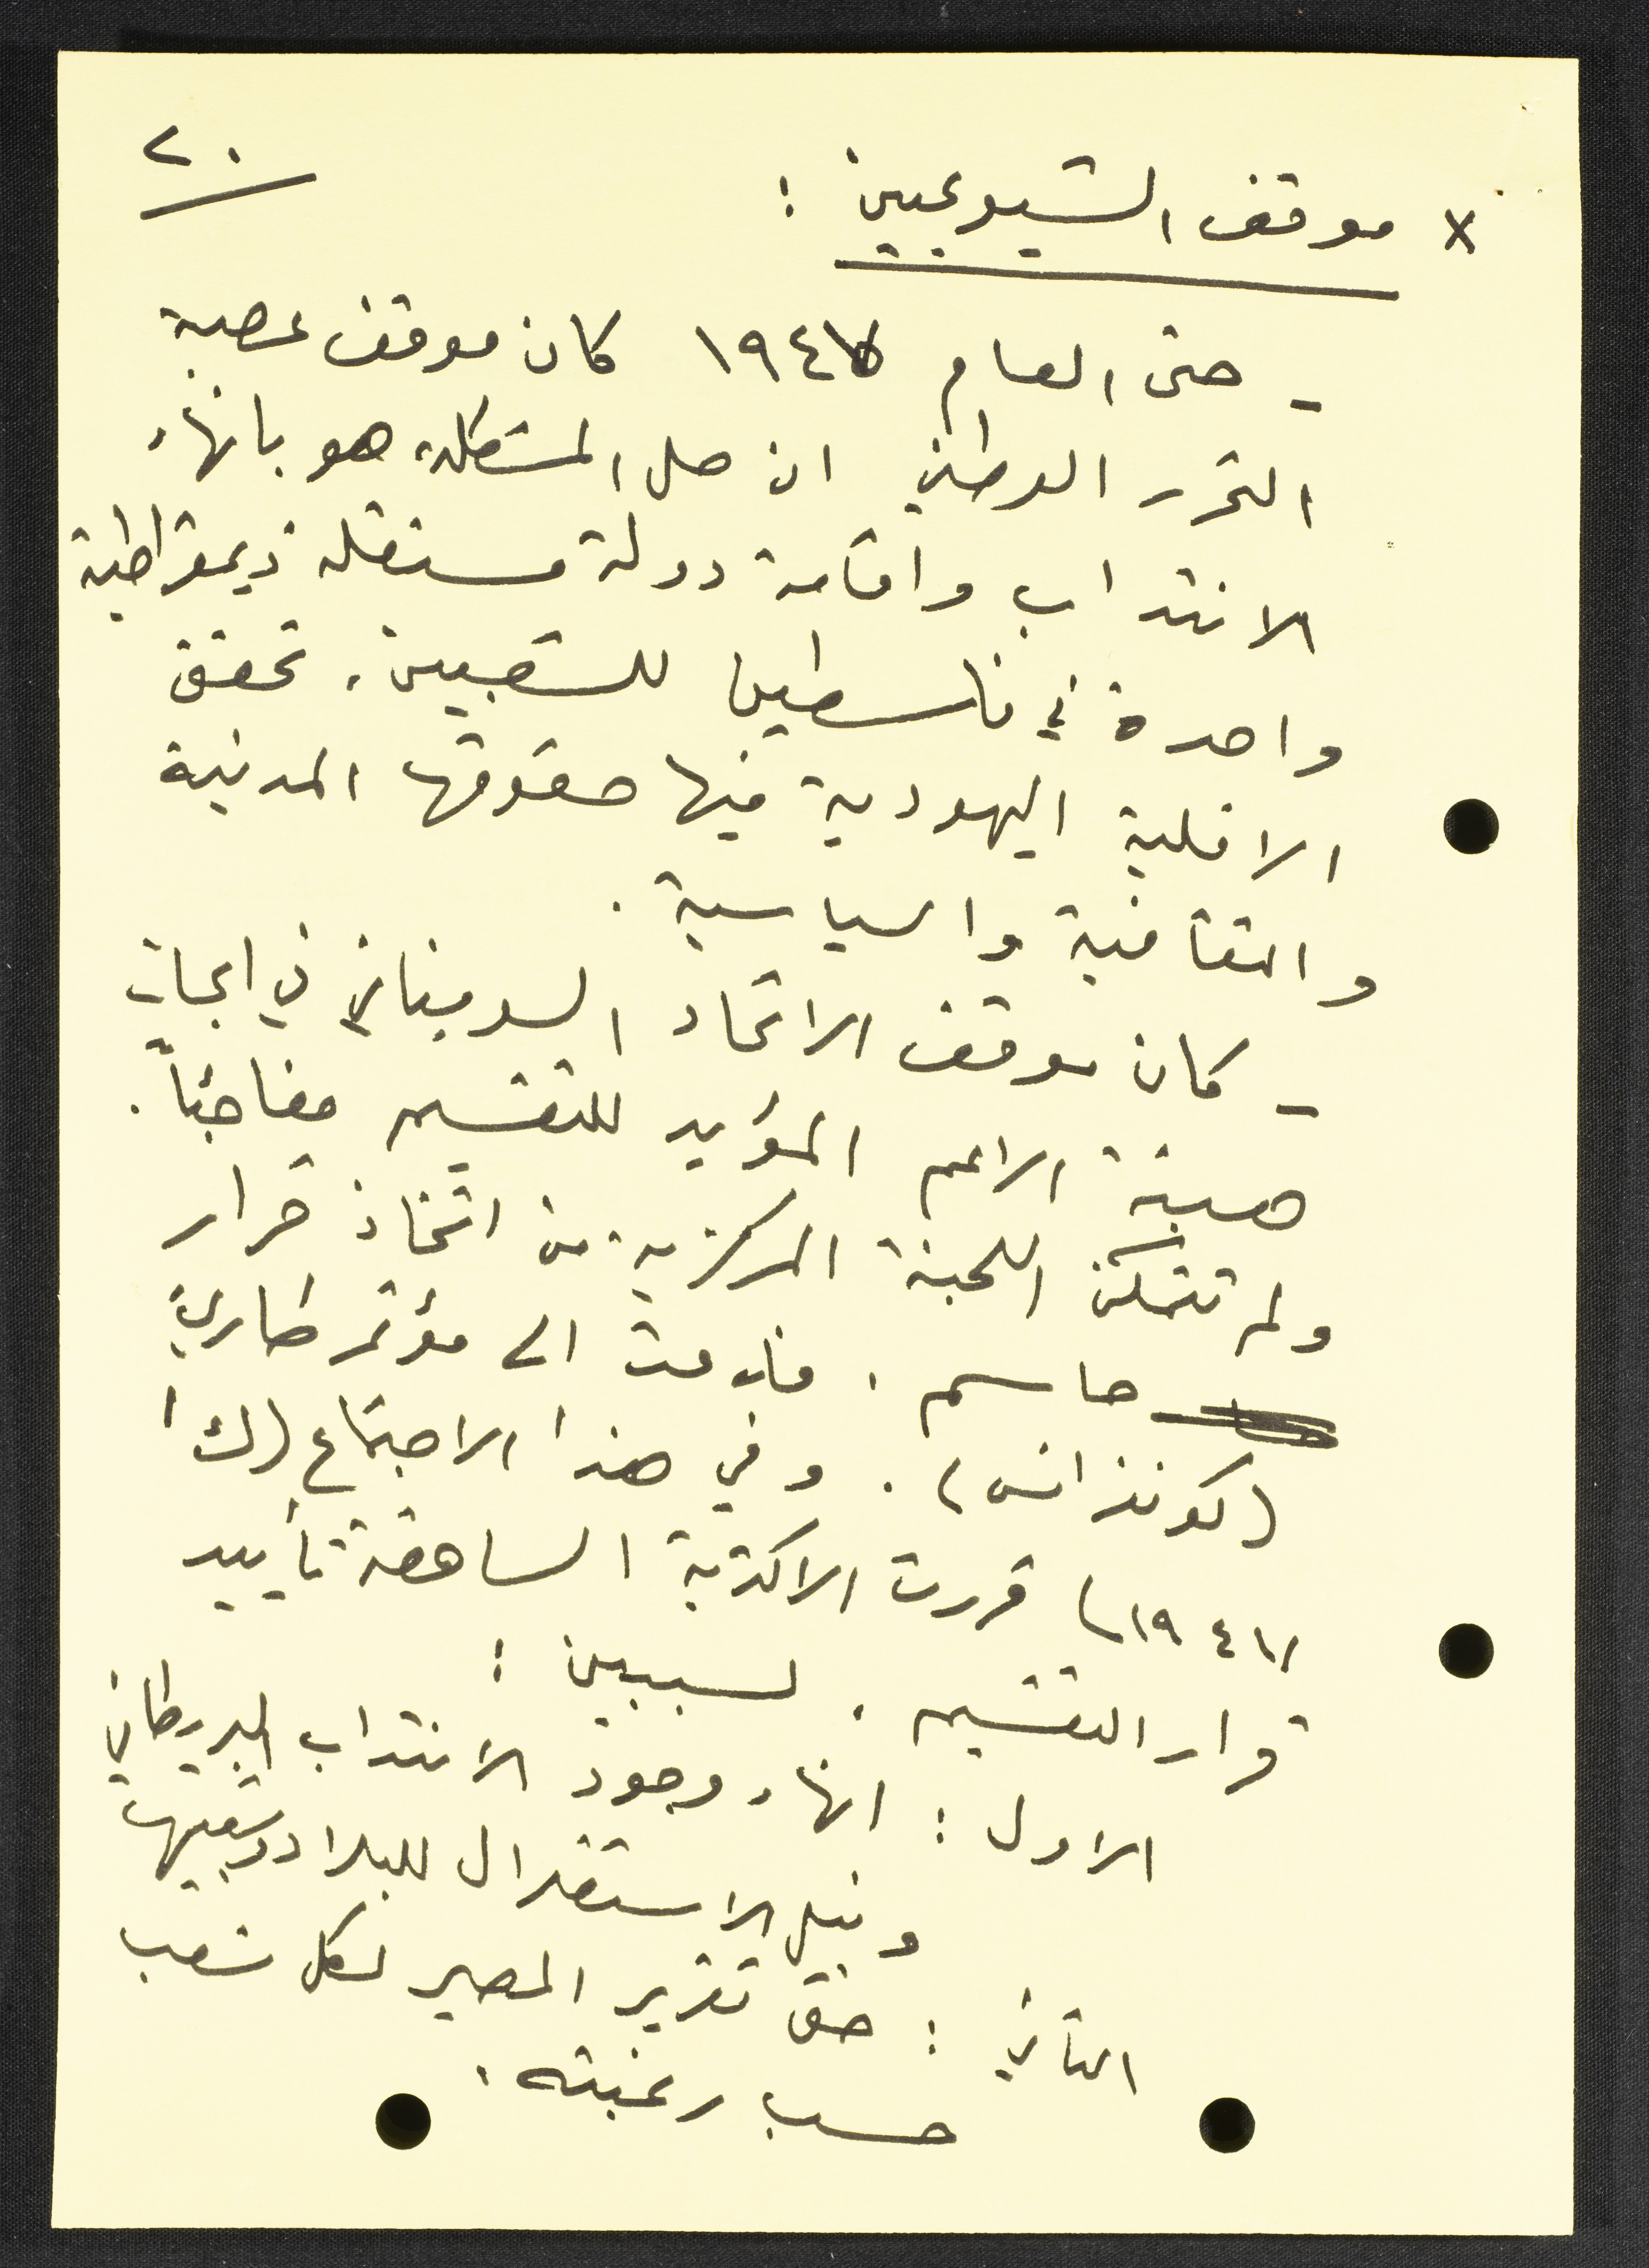 ٢٠
x موقف الشيوعيين :
- حتى العام ١٩٤٧ كان موقف عصبة
التحرر الوطني ان حل المشكلة هو بانهاء
الانتداب واقامة دولة مستقلة ديمقراطية
واحدة في فلسطين للشعبين، تحقق
الاقلية اليهودية فيها حقوقها المدنية
والثقافية والسياسية .
- كان موقف الاتحاد السوفياتي في ابحاث
هيئة الامم المؤيد للتقسيم مفاجئاً .
ولم تتمكن اللجنة المركزية من اتخاذ قرار
حاسم . فدعت الى مؤتمر طارئ
(كونفرانس) . وفي هذا الاجتماع (ك ١
١٩٤٧) قررت الاكثرية الساحقة تأييد
قرار التقسيم . لسببين :
الاول : انهاء وجود الانتداب البريطاني
ونيل الاستقلال للبلاد وشعبيها
الثاني : حق تقرير المصير لكل شعب
حسب رغبته .